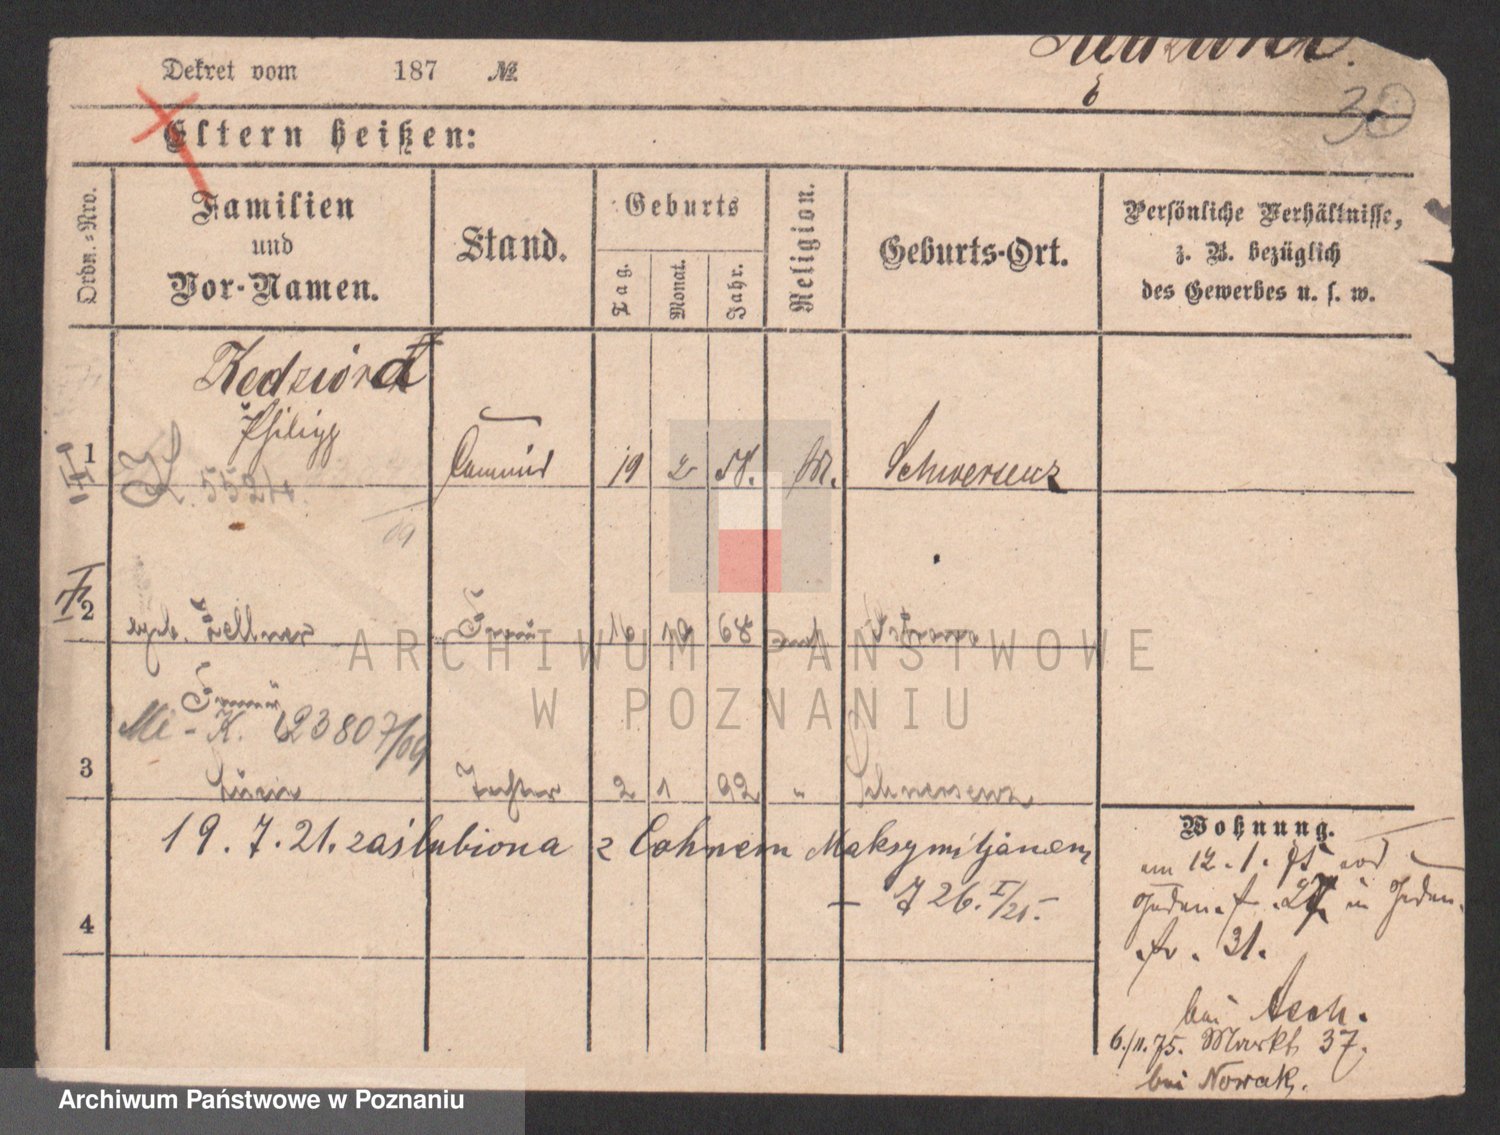 Dekret vom 187 №
30
Eltern heißen:
Ordn.=Nro.
Familien
und
Vor-Namen.
Stand.
Geburts
Tag.
Monat.
Jahr.
Religion.
Geburts-Ort.
Persönliche Verhältnisse,
z. B. bezüglich
des Gewerbes u. s. w.
Philipp
1 Commis 19 2 M. Schwersenz
5524
2 geb. Zellner Frau 16 68
K. 23807/09
3 Tochter 2 1 92 " Schwersenz
19. 7. 21. zaślubiona z Cohnem Maksymiljanem
J 26. I/21.
4
Wohnung.
am 12. 1. 75 von
27 in
31.
bei Asch.
6./11. 75. Markt 37.
bei Nowak.
ARCHIWUM PAŃSTWOWE
W POZNANIU
Archiwum Państwowe w Poznaniu